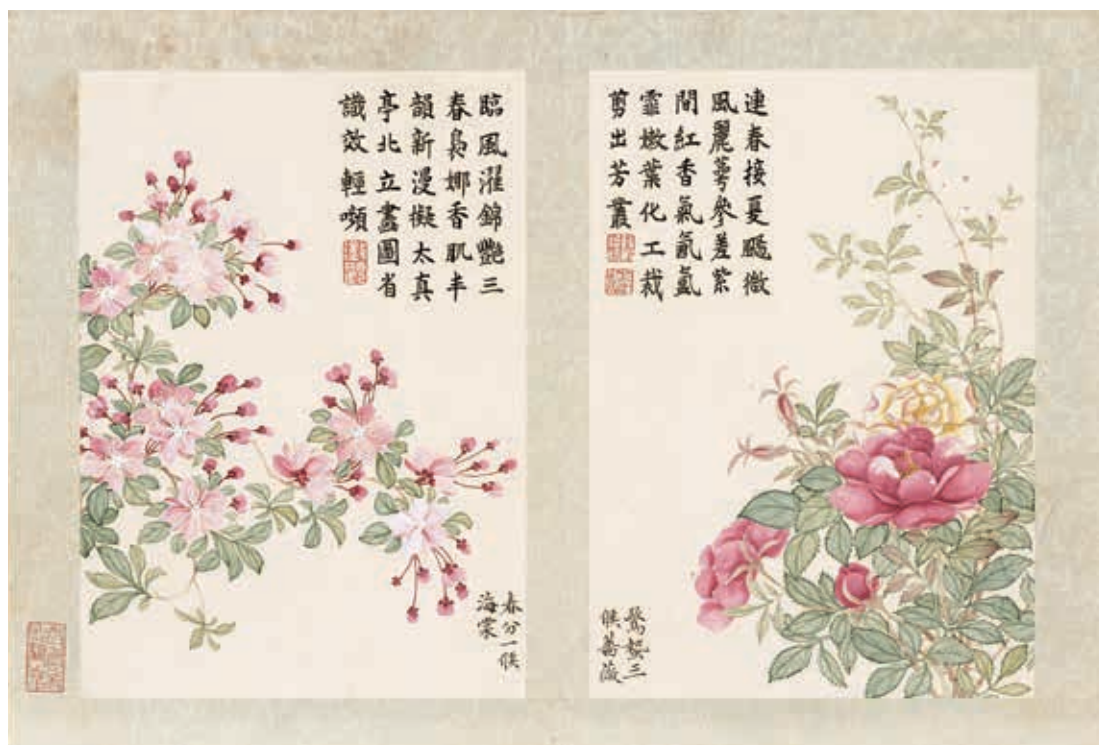 連春接夏颺微
風麗萼參差紫
間紅香氣氤氳
嫩葉化工裁
剪出芳叢
驚蟄三
候薔薇
臨風濯錦艷三
春裊娜香肌丰
韻新漫擬太真
亭北立畫圖省
識效輕嚬
春分一候
海棠